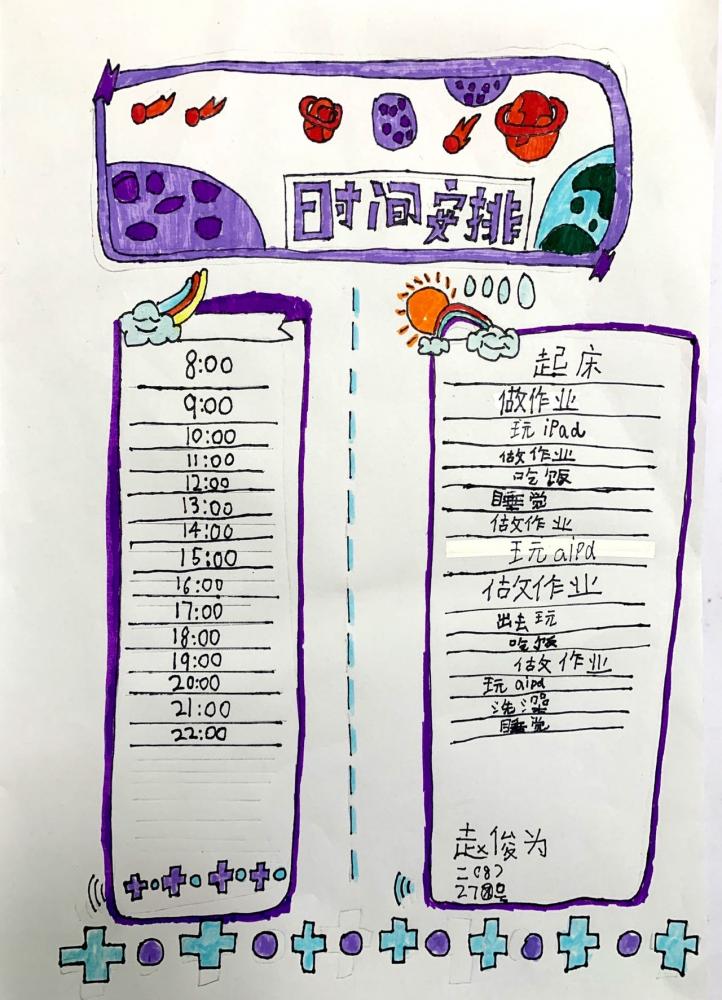 时间安排
8:00
9:00
10:00
11:00
12:00
13:00
14:00
15:00
16:00
17:00
18:00
19:00
20:00
21:00
22:00
起床
做作业
玩iPad
做作业
吃饭
睡觉
做作业
玩aipd
做作业
出去玩
吃饭
做作业
玩aipd
洗澡
睡觉
赵俊为
二(8)
27号